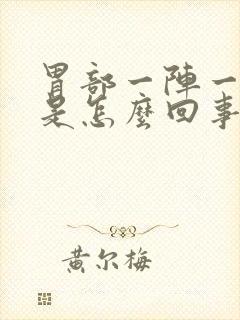 胃部一陣一
是怎麼回事
黄尔梅